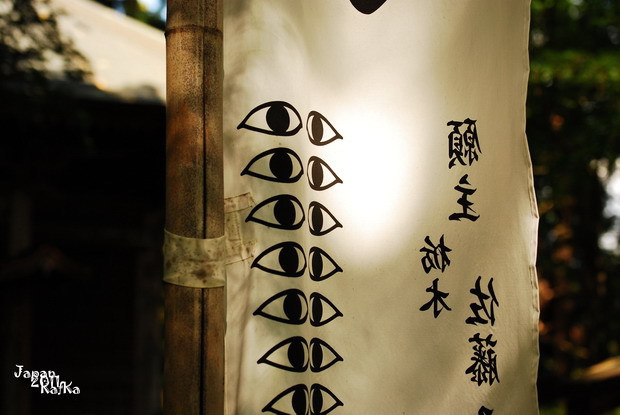 願主
栃木
佐藤
Japan
2011